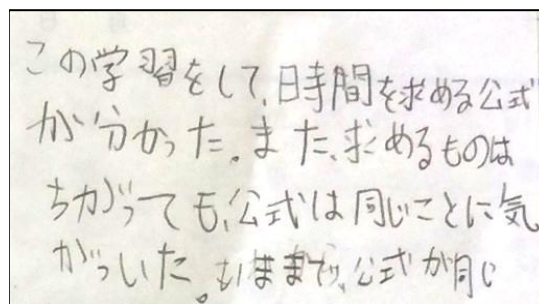 この学習をして、時間を求める公式
が分かった。また、求めるものは
ちがっても、公式は同じことに気
がついた。いままで、公式が同じ